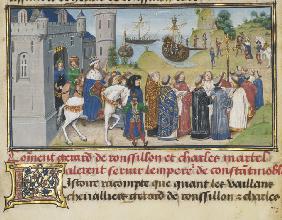 Coment gerard de roussillon et charles martel
alerent seruir lempereˀ de constātinoble
Istoire racompte que quant les vaillans
cheualliers gerard de roussillon et charles